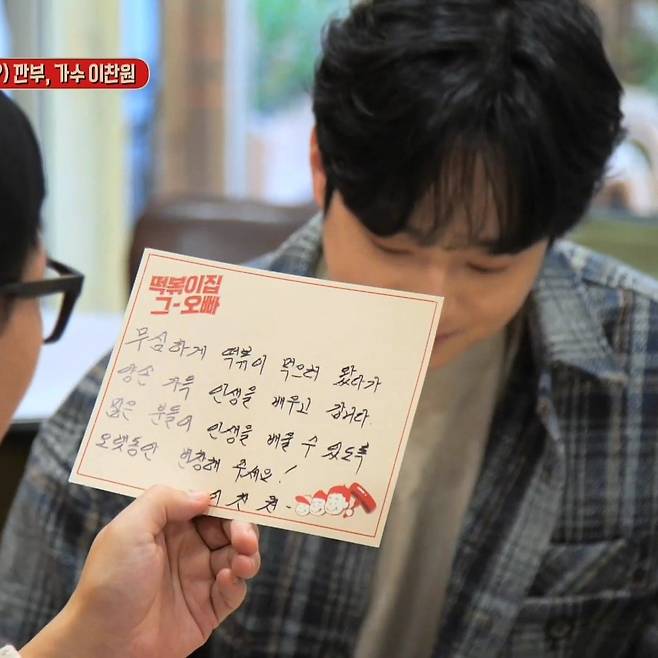 ?) 깐부, 가수 이찬원
떡볶이집
그-오빠
무심하게 떡볶이 먹으러 왔다가
양손 가득 인생을 배우고 갑니다.
많은 분들이 인생을 배울 수 있도록
오랫동안 번창해 주세요!
이찬원-